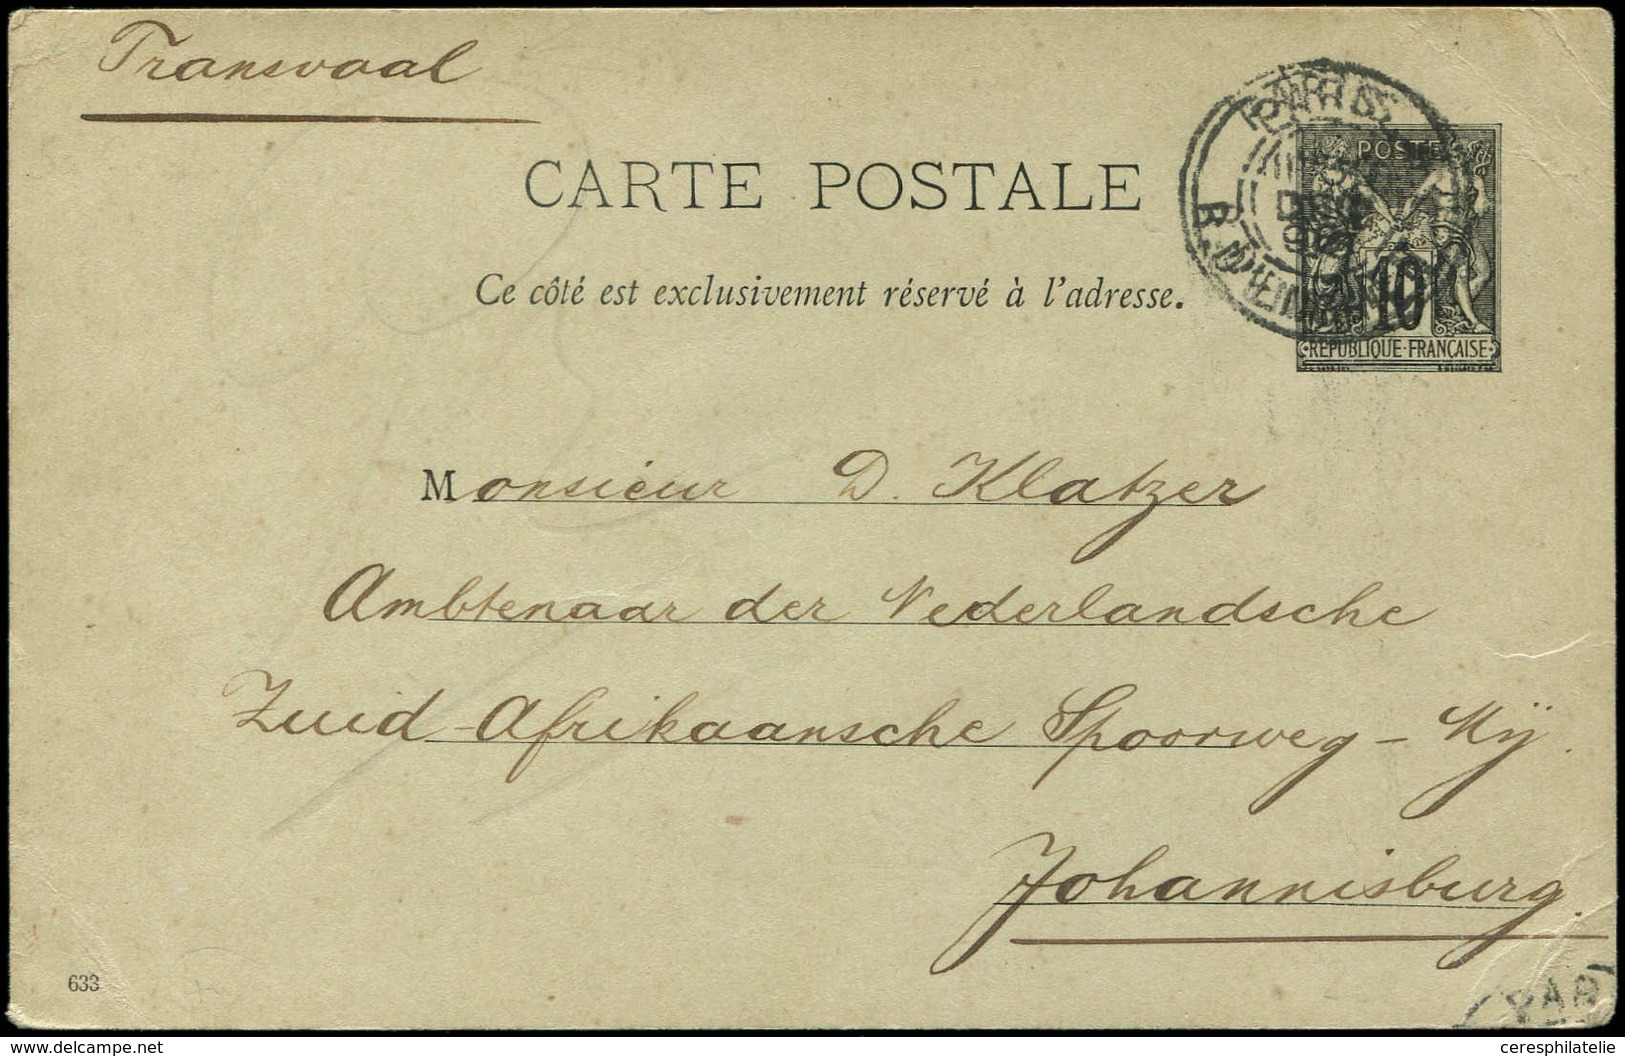 Transvaal
PARIS
POSTE
CARTE POSTALE
10
Ce côté est exclusivement réservé à l'adresse.
RÉPUBLIQUE FRANÇAISE
Monsieur D. Klatzer
Ambtenaar der Nederlandsche
Zuid-Afrikaansche Spoorweg-Mÿ.
Johannisburg.
633
PAR
www.delcampe.net
ceresphilatelie